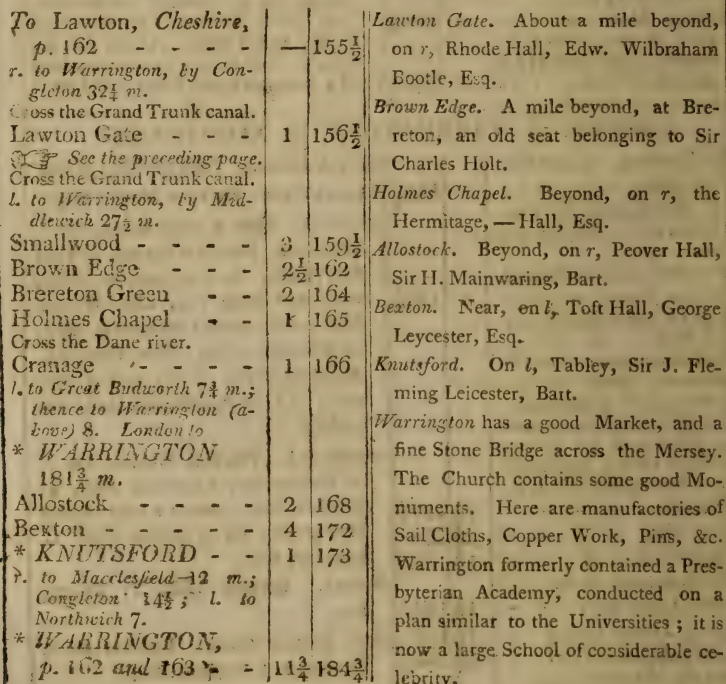 To Lawton, Cheshire,
p. 162 - - - - — 155½
r. to Warrington, by Con-
gleton 32¼ m.
Cross the Grand Trunk canal.
Lawton Gate - - - 1 156½
☞ See the preceding page.
Cross the Grand Trunk canal.
l. to Warrington, by Mid-
dlewich 27½ m.
Smallwood - - - - 3 159½
Brown Edge - - - 2½ 162
Brereton Green - - 2 164
Holmes Chapel - - 1 165
Cross the Dane river.
Cranage - - - - 1 166
l. to Great Budworth 7¾ m.;
thence to Warrington (a-
bove) 8. London to
* WARRINGTON
181¾ m.
Allostock - - - - 2 168
Bexton - - - - - 4 172
* KNUTSFORD - - 1 173
r. to Macclesfield 12 m.;
Congleton 14½; l. to
Northwich 7.
* WARRINGTON,
p. 162 and 163 - 11¾ 184¾
Lawton Gate. About a mile beyond,
on r, Rhode Hall, Edw. Wilbraham
Bootle, Esq.
Brown Edge. A mile beyond, at Bre-
reton, an old seat belonging to Sir
Charles Holt.
Holmes Chapel. Beyond, on r, the
Hermitage, — Hall, Esq.
Allostock. Beyond, on r, Peover Hall,
Sir H. Mainwaring, Bart.
Bexton. Near, on l, Toft Hall, George
Leycester, Esq.
Knutsford. On l, Tabley, Sir J. Fle-
ming Leicester, Bart.
Warrington has a good Market, and a
fine Stone Bridge across the Mersey.
The Church contains some good Mo-
numents. Here are manufactories of
Sail Cloths, Copper Work, Pins, &c.
Warrington formerly contained a Pres-
byterian Academy, conducted on a
plan similar to the Universities ; it is
now a large School of considerable ce-
lebrity.